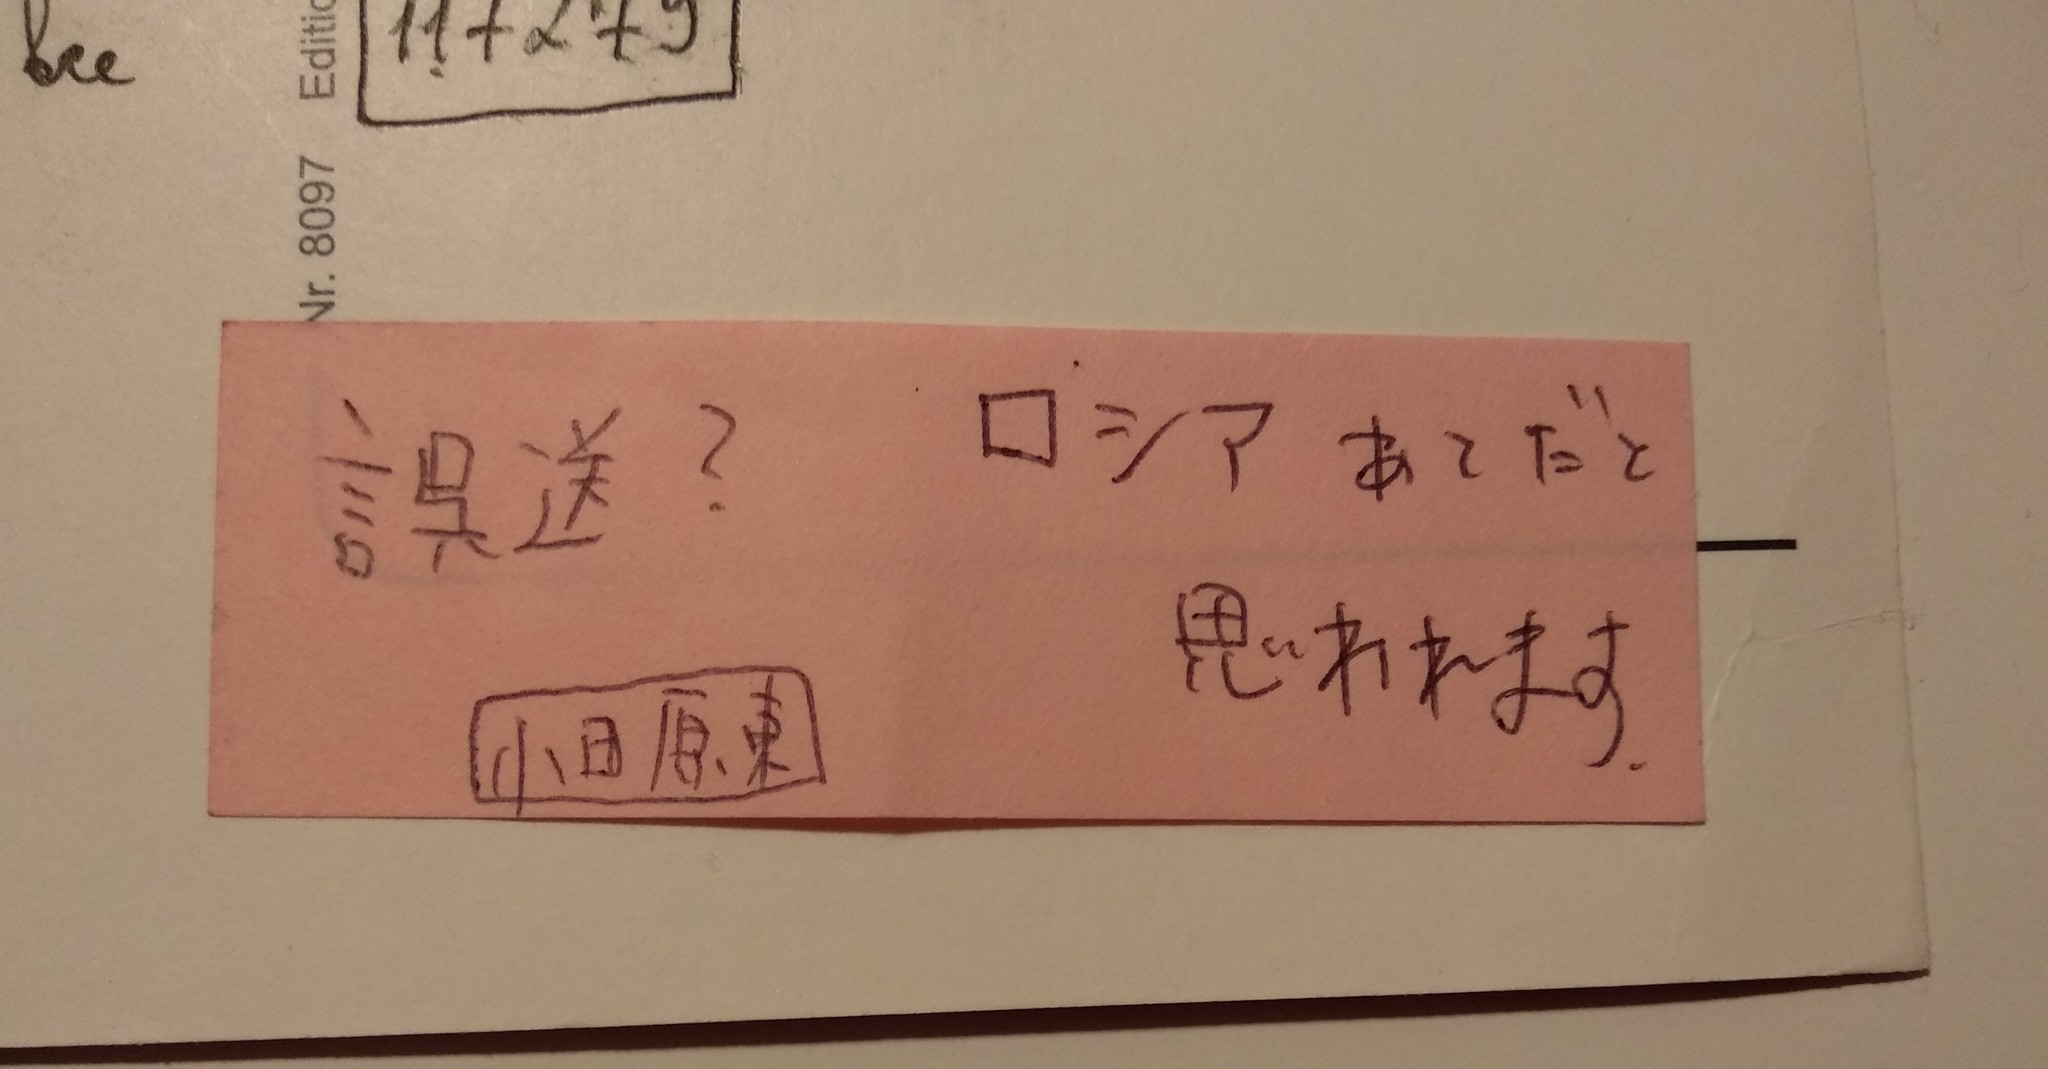 все
117279
Nr. 8097 Editio
誤送? ロシアあてだと
思われます.
小田原東